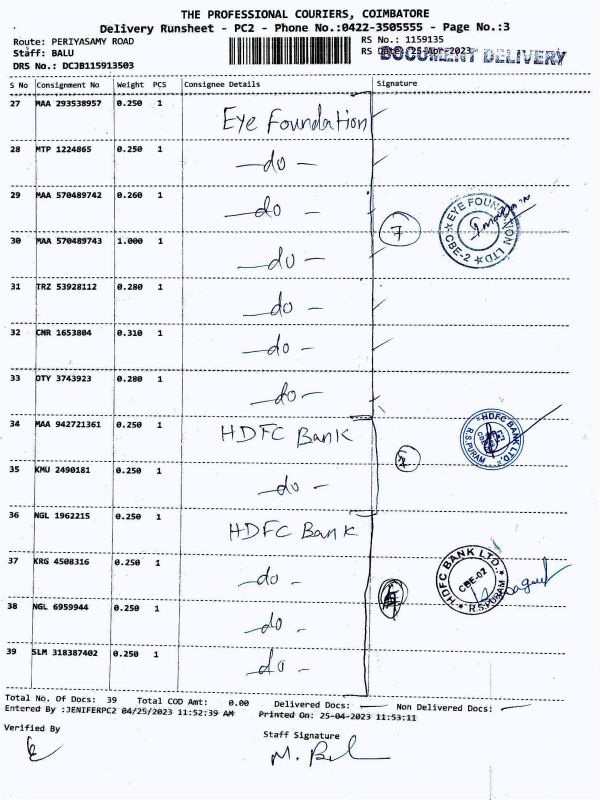 THE PROFESSIONAL COURIERS, COIMBATORE
Delivery Runsheet - PC2 - Phone No.:0422-3505555 - Page No.:3
Route: PERIYASAMY ROAD RS No.: 1159135
Staff: BALU RS Date: 25-Apr-2023
DOCUMENT DELIVERY
DRS No.: DCJB115913503
S No Consignment No Weight PCS Consignee Details Signature
27 MAA 293538957 0.250 1 Eye Foundation
28 MTP 1224865 0.250 1 -do-
29 MAA 570489742 0.260 1 -do-
7
EYE FOUNDATION LTD CBE-2
30 MAA 570489743 1.000 1 -do-
31 TRZ 53928112 0.280 1 -do-
32 CNR 1653804 0.310 1 -do-
33 OTY 3743923 0.280 1 -do-
34 MAA 942721361 0.250 1 HDFC Bank
HDFC BANK LTD. R.S.PURAM
35 KMU 2490181 0.250 1 -do-
36 NGL 1962215 0.250 1 HDFC Bank
37 KRG 4508316 0.250 1 -do-
HDFC BANK LTD. CBE-02 R.S.PURAM
38 NGL 6959944 0.250 1 -do-
39 SLM 318387402 0.250 1 -do-
Total No. Of Docs: 39 Total COD Amt: 0.00 Delivered Docs: Non Delivered Docs:
Entered By :JENIFERPC2 04/25/2023 11:52:39 AM Printed On: 25-04-2023 11:53:11
Verified By Staff Signature